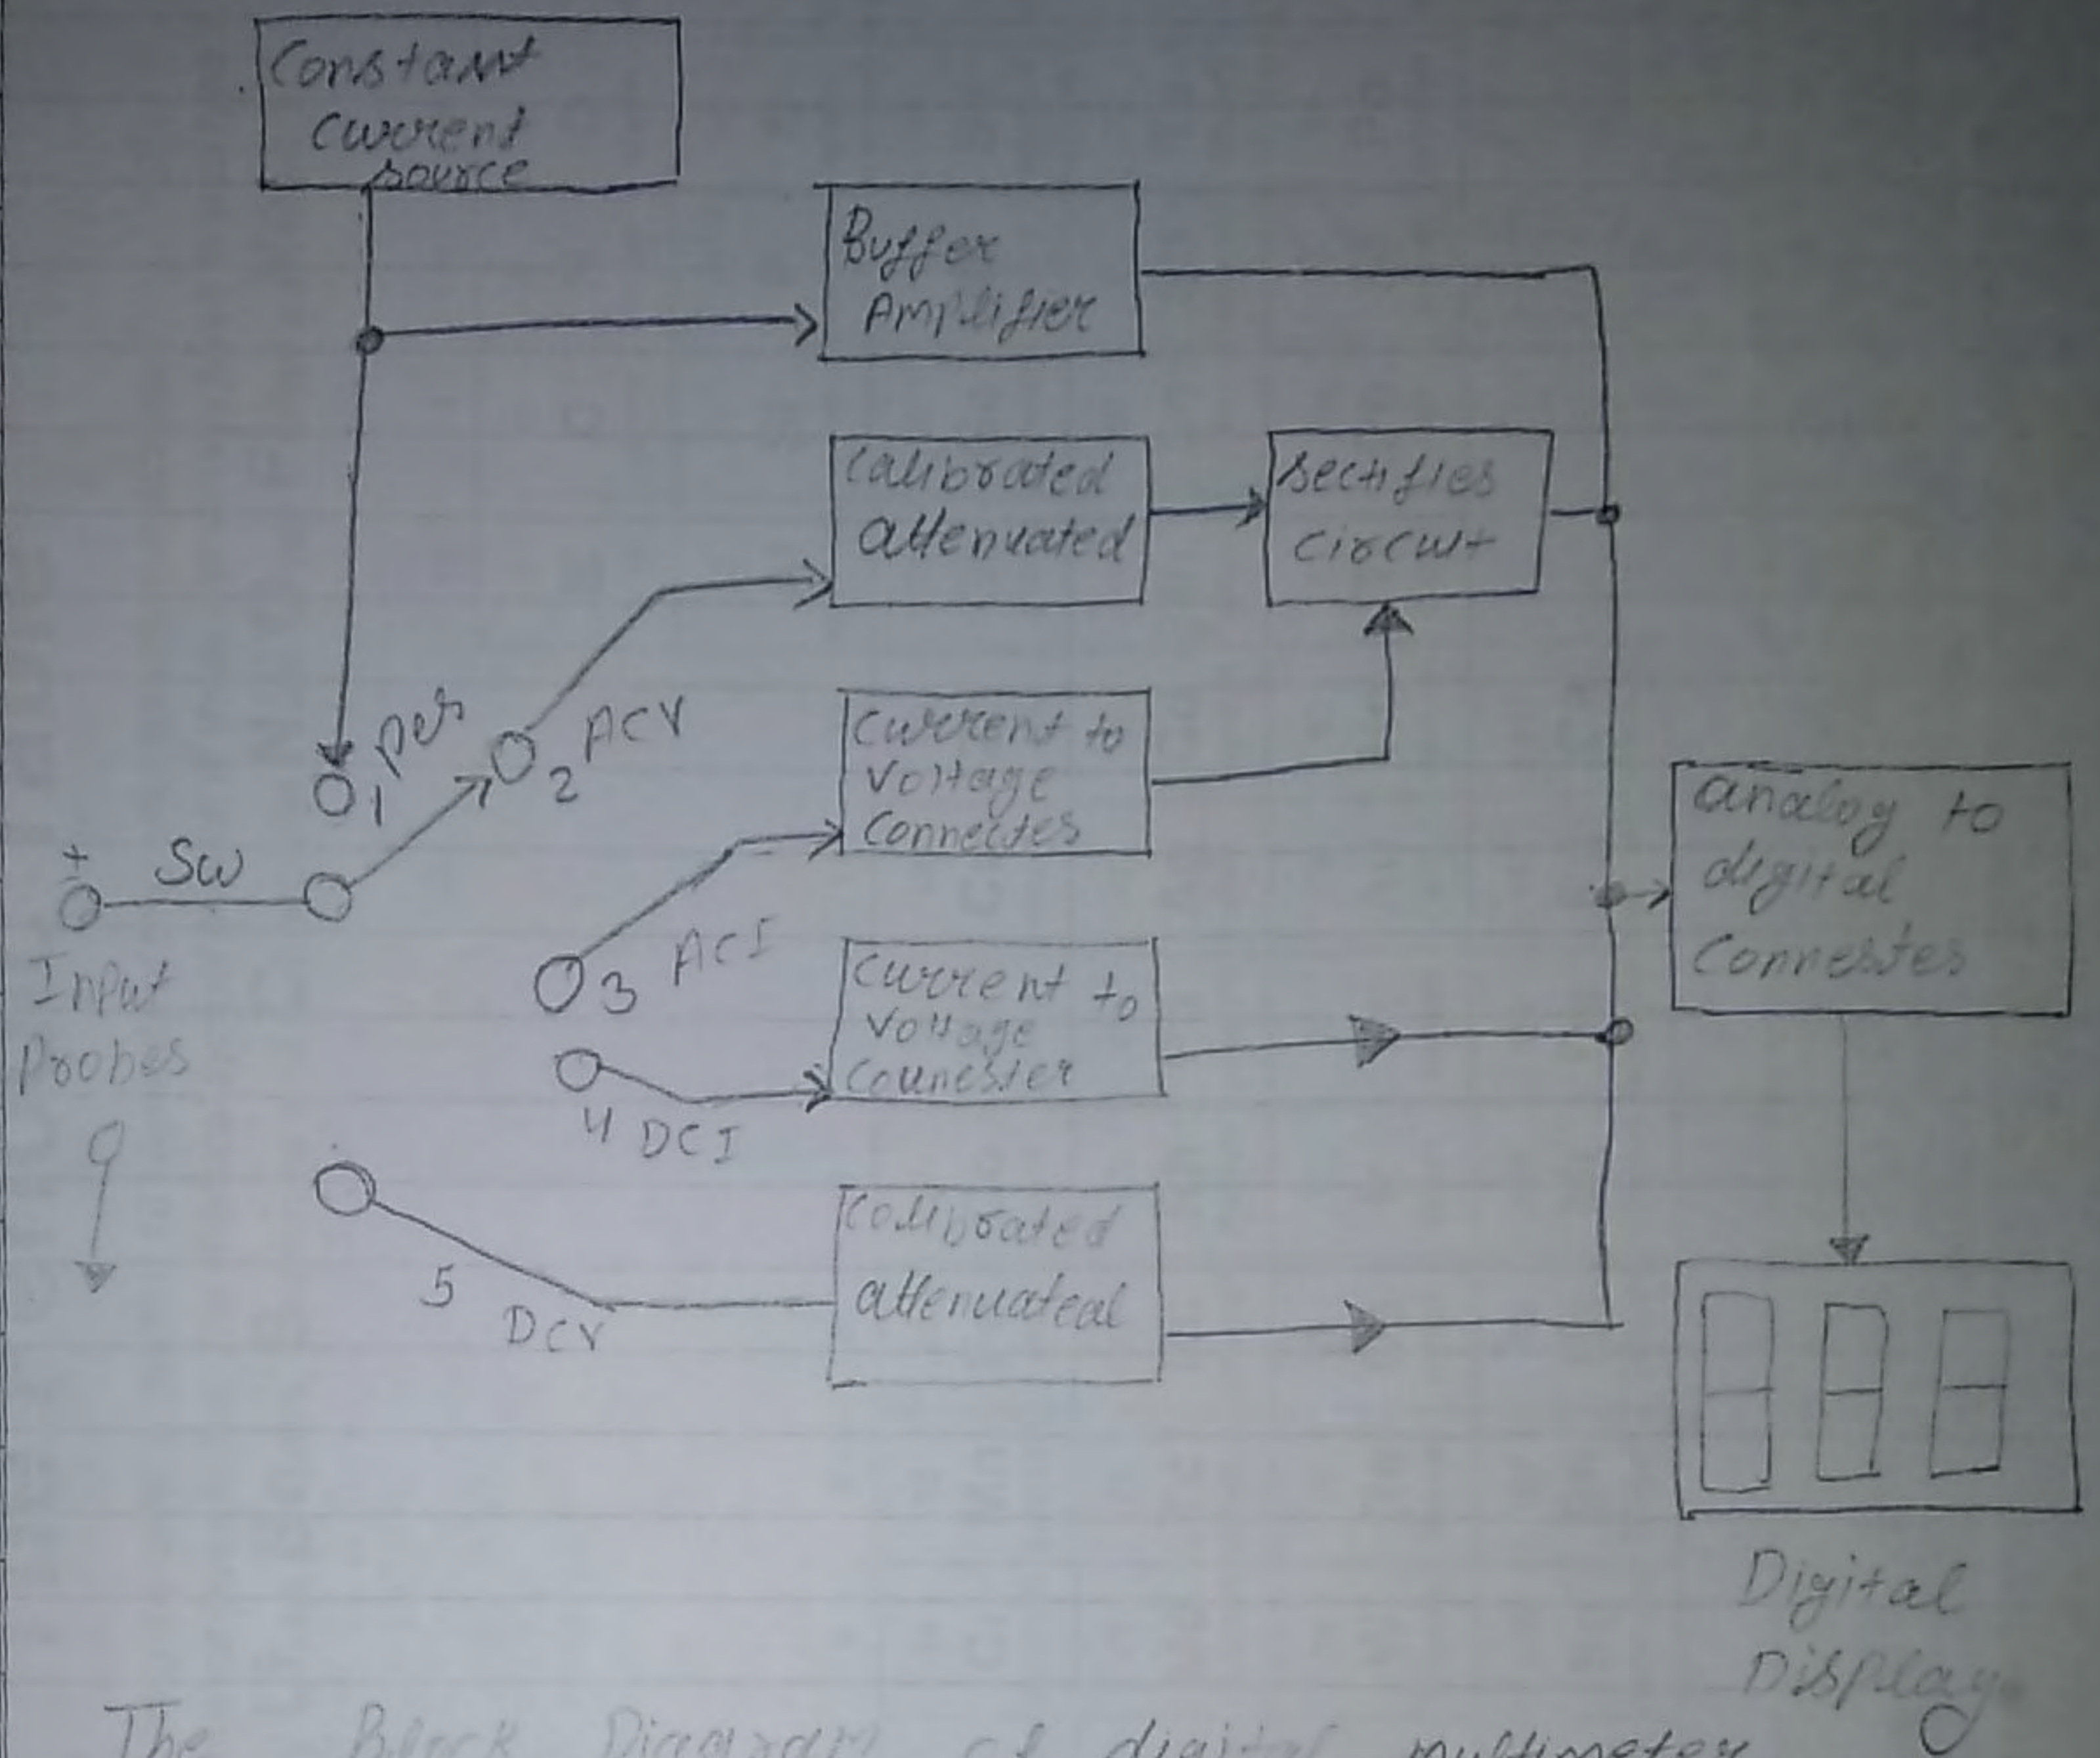 Constant
current
source
Buffer
Amplifier
Calibrated
attenuated
Rectifies
circuit
1
2 ACV
Current to
Voltage
Connectes
+
-
SW
Input
Probes
3 ACI
Current to
Voltage
Counester
4 DCI
analog to
digital
Connestes
5
DCV
Calibrated
attenuated
Digital
Display
The Block Diagram of digital multimeter